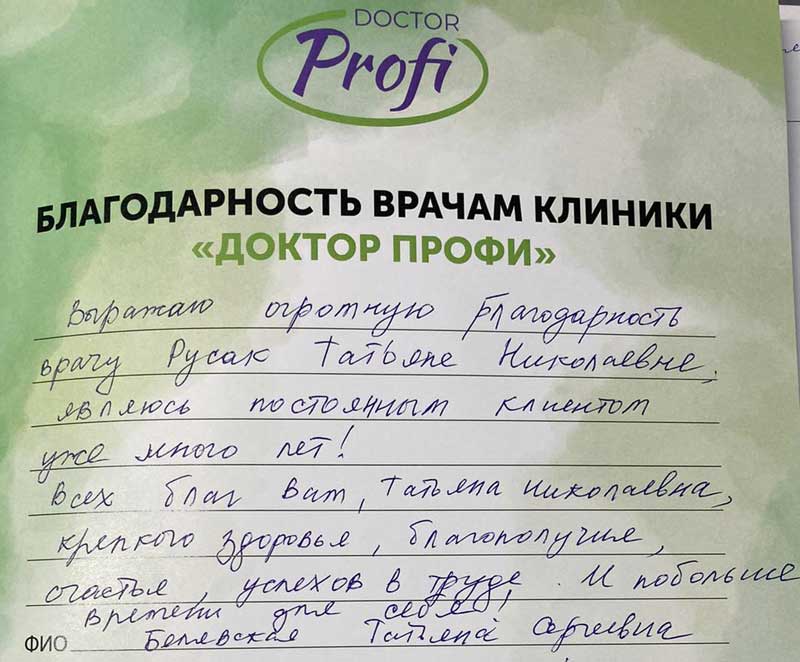 DOCTOR
Profi
БЛАГОДАРНОСТЬ ВРАЧАМ КЛИНИКИ
«ДОКТОР ПРОФИ»
Выражаю огромную благодарность
врачу Русак Татьяне Николаевне,
являюсь постоянным клиентом
уже много лет!
Всех благ Вам, Татьяна Николаевна,
крепкого здоровья, благополучия,
счастья, успехов в труде. И побольше
времени для себя!
ФИО Белявская Татьяна Сергеевна